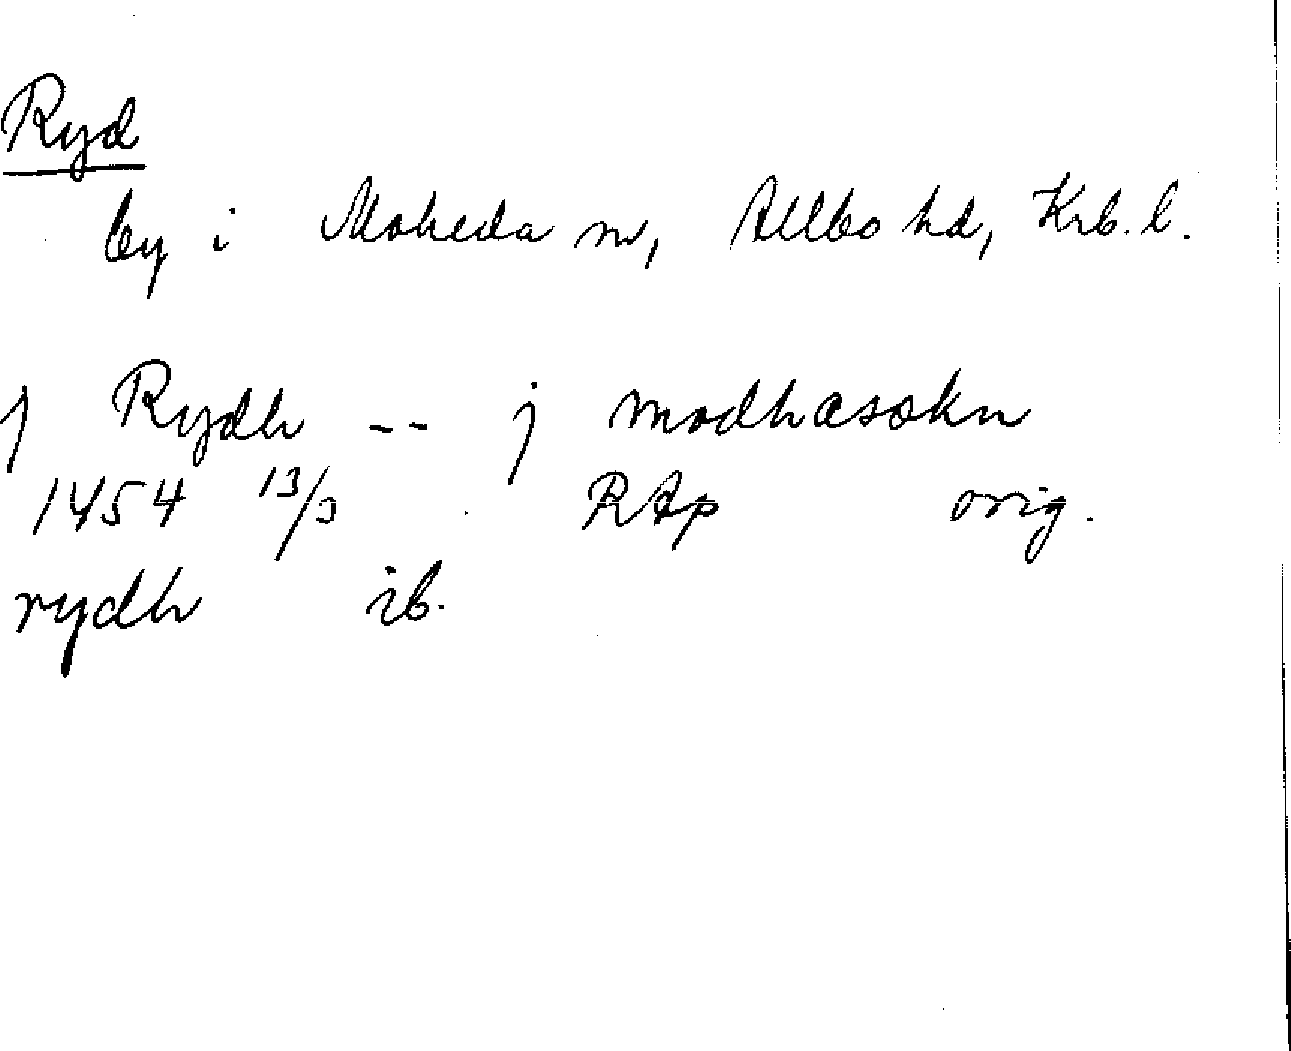 Ryd
by i Moheda sn, Allbo hd, Krb. l.
j Rydh -- j modhasokn
1454 13/3 RAp orig.
rydh ib.